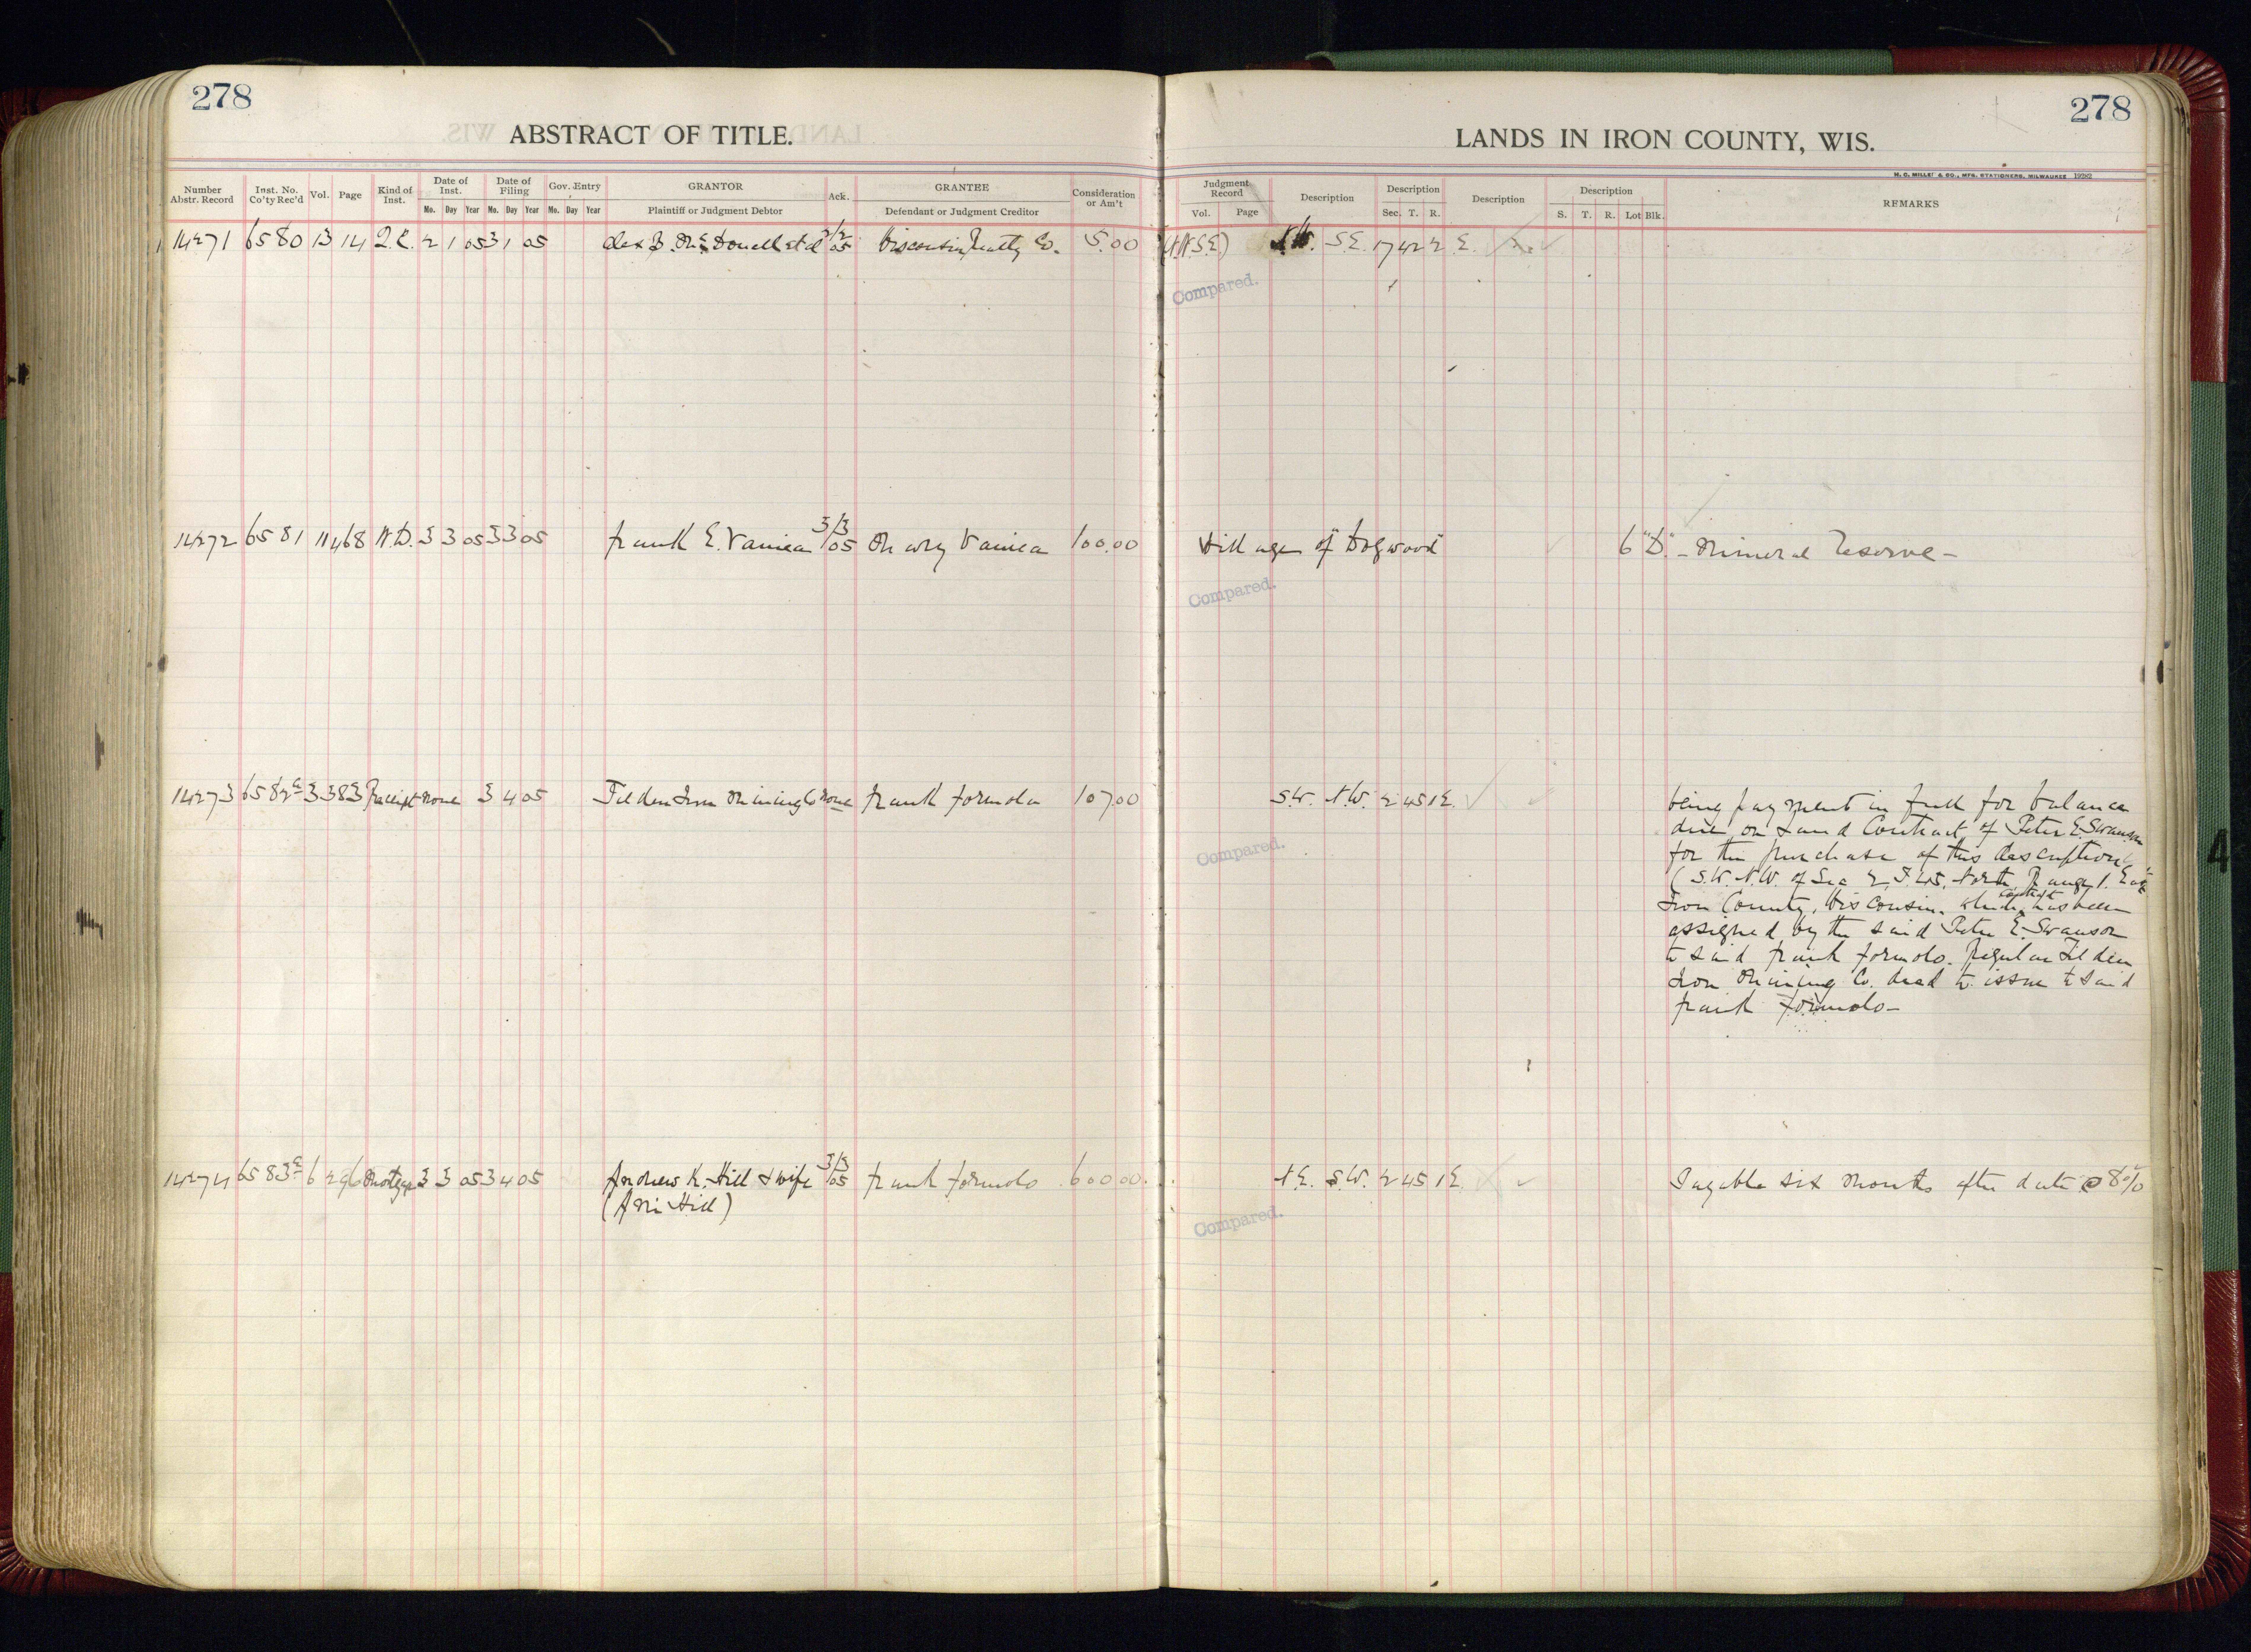 278
ABSTRACT OF TITLE.
278
LANDS IN IRON COUNTY, WIS.
H. C. MILLER & CO., MFG. STATIONERS, MILWAUKEE 19262
Number Abstr. Record Inst. No. Co'ty Rec'd Vol. Page Kind of Inst. Date of Inst. Mo. Day Year Date of Filing Mo. Day Year Gov. Entry Mo. Day Year GRANTOR Plaintiff or Judgment Debtor Ack. GRANTEE Defendant or Judgment Creditor Consideration or Am't
Judgment Record Vol. Page Description Description Sec. T. R. Description Description S. T. R. Lot Blk. REMARKS
14271 6580 13 14 Q.C. 2 1 05 3 1 05 Alex B. McDonell et al 3/2 05 Wisconsin Realty Co. 5.00 (N.W.S.E.) N.W. S.E. 17 42 2 E.
Compared.
14272 6581 11 468 W.D. 3 3 05 3 3 05 Frank E. 3/3 05 Mary 100.00 Village of "Dogwood" 6 "D" - Mineral Reserve -
Compared.
14273 6582 3 383 Receipt None 3 4 05 Tilden Iron Mining Co None Frank Formolo 107.00 S.W. N.W. 2 45 1 E.
being payment in full for balance
due on Land Contract of Peter E. Swanson
for the purchase of this description
(S.W. N.W. of Sec 2, T. 45, North, Range 1. East
Iron County, Wisconsin. which contract has been
assigned by the said Peter E. Swanson
to said Frank Formolo. Regular Tilden
Iron Mining Co. deed to issue to said
Frank Formolo -
Compared.
14274 6583 6 296 Mortgage 3 3 05 3 4 05 Andrew K. Hill & wife 3/3 05 Frank Formolo 600.00 N.E. S.W. 2 45 1 E. Payable six months after date @ 8%
Hill)
Compared.